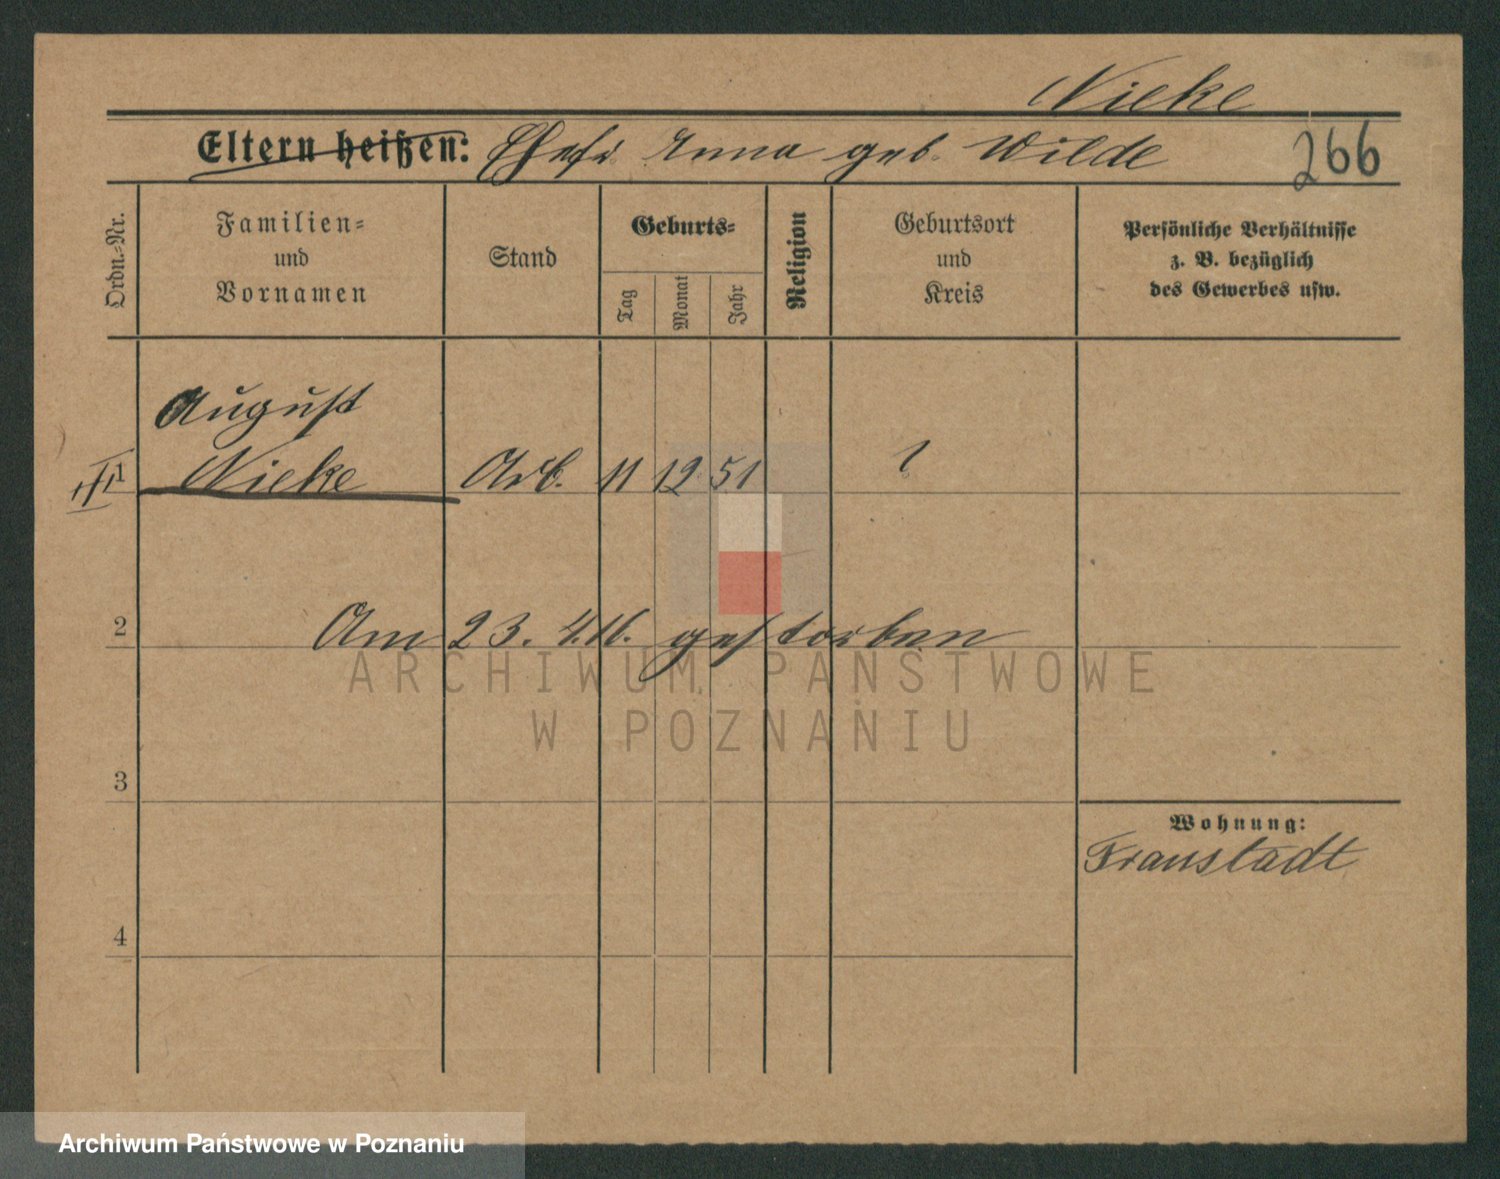 Nieke
Eltern heißen: Ehefr. Anna geb. Wilde
266
Ordn.-Nr.
Familien-
und
Vornamen
Stand
Geburts-
Tag
Monat
Jahr
Religion
Geburtsort
und
Kreis
Persönliche Verhältnisse
z. B. bezüglich
des Gewerbes usw.
August
Nieke Arb. 11 12 51 ?
2 Am 23. 4. 16. gestorben
ARCHIWUM PAŃSTWOWE
W POZNANIU
3
Wohnung:
Fraustadt
4
Archiwum Państwowe w Poznaniu